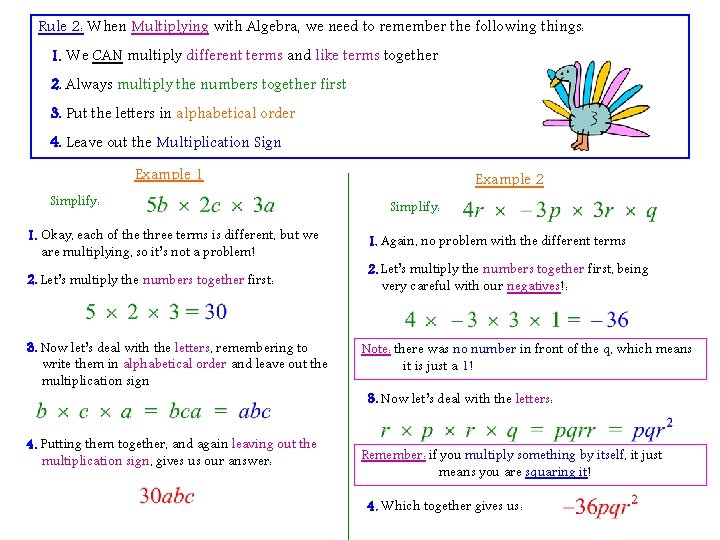 Rule 2: When Multiplying with Algebra, we need to remember the following things:
1. We CAN multiply different terms and like terms together
2. Always multiply the numbers together first
3. Put the letters in alphabetical order
4. Leave out the Multiplication Sign
Example 1
Simplify: 5b × 2c × 3a
1. Okay, each of the three terms is different, but we
are multiplying, so it's not a problem!
2. Let's multiply the numbers together first:
5 × 2 × 3 = 30
3. Now let's deal with the letters, remembering to
write them in alphabetical order and leave out the
multiplication sign
b × c × a = bca = abc
4. Putting them together, and again leaving out the
multiplication sign, gives us our answer:
30abc
Example 2
Simplify: 4r × −3p × 3r × q
1. Again, no problem with the different terms
2. Let's multiply the numbers together first, being
very careful with our negatives!:
4 × −3 × 3 × 1 = −36
Note: there was no number in front of the q, which means
it is just a 1!
3. Now let's deal with the letters:
r × p × r × q = pqrr = pqr²
Remember: if you multiply something by itself, it just
means you are squaring it!
4. Which together gives us: −36pqr²